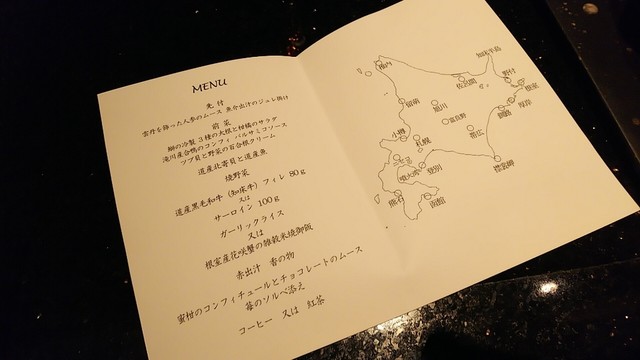 MENU
先付
雲丹を飾った人参のムース 魚介出汁のジュレ掛け
前菜
鰤の冷製 3種の大根と柑橘のサラダ
滝川産合鴨のコンフィ バルサミコソース
ツブ貝と野菜の百合根クリーム
道産北寄貝と道産魚
焼野菜
道産黒毛和牛(知床牛)フィレ 80g
又は
サーロイン 100g
ガーリックライス
又は
根室産花咲蟹の雑穀米焼御飯
赤出汁 香の物
蜜柑のコンフィチュールとチョコレートのムース
苺のソルベ添え
コーヒー 又は 紅茶
稚内
知床半島
佐呂間
野付
根室
留萌
旭川
厚岸
釧路
富良野
帯広
小樽
札幌
ニセコ
噴火湾
登別
襟裳岬
熊石
函館